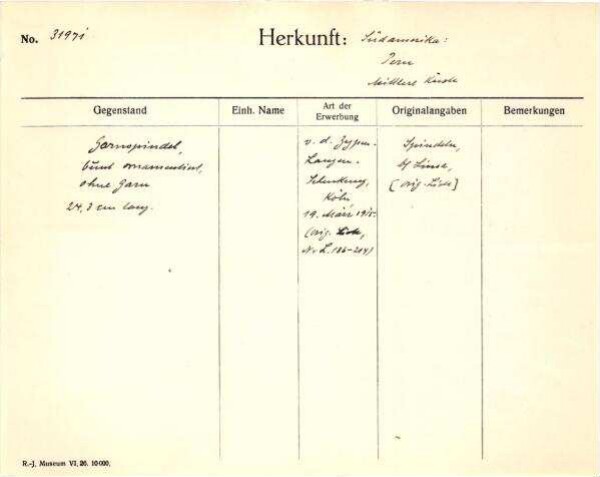 No. 31971
Herkunft: Südamerika:
Peru
Mittlere Küste
Gegenstand
Einh. Name
Art der Erwerbung
Originalangaben
Bemerkungen
Garnspindel,
bunt ornamentiert,
ohne Garn
24,3 cm lang.
v. d. Zypen-
Langen-
Schenkung,
Köln
19. März
(orig. Liste,
Spindeln,
(orig. Liste)
R.-J. Museum VI, 26. 10000.